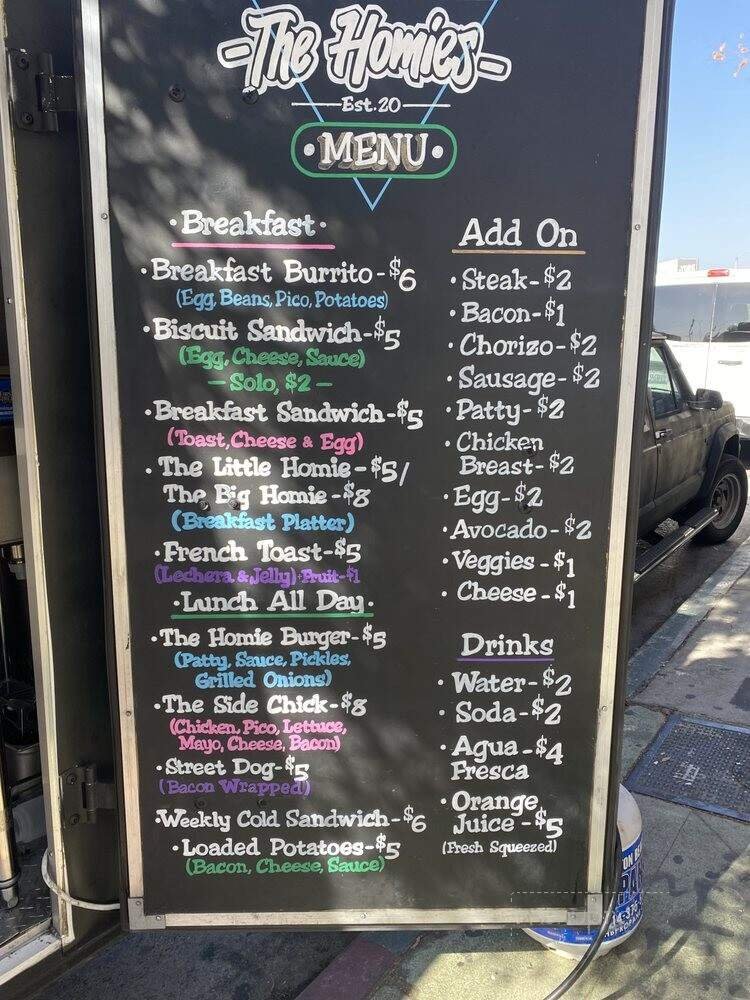 The Homies
Est. 20
MENU
Breakfast
Breakfast Burrito - $6
(Egg, Beans, Pico, Potatoes)
Biscuit Sandwich - $5
(Egg, Cheese, Sauce)
— Solo, $2 —
Breakfast Sandwich - $5
(Toast, Cheese & Egg)
The Little Homie - $5/
The Big Homie - $8
(Breakfast Platter)
French Toast - $5
(Lechera & Jelly) Fruit - $1
Lunch All Day
The Homie Burger - $5
(Patty, Sauce, Pickles,
Grilled Onions)
The Side Chick - $8
(Chicken, Pico, Lettuce,
Mayo, Cheese, Bacon)
Street Dog - $5
(Bacon Wrapped)
Weekly Cold Sandwich - $6
Loaded Potatoes - $5
(Bacon, Cheese, Sauce)
Add On
Steak - $2
Bacon - $1
Chorizo - $2
Sausage - $2
Patty - $2
Chicken
Breast - $2
Egg - $2
Avocado - $2
Veggies - $1
Cheese - $1
Drinks
Water - $2
Soda - $2
Agua - $4
Fresca
Orange
Juice - $5
(Fresh Squeezed)